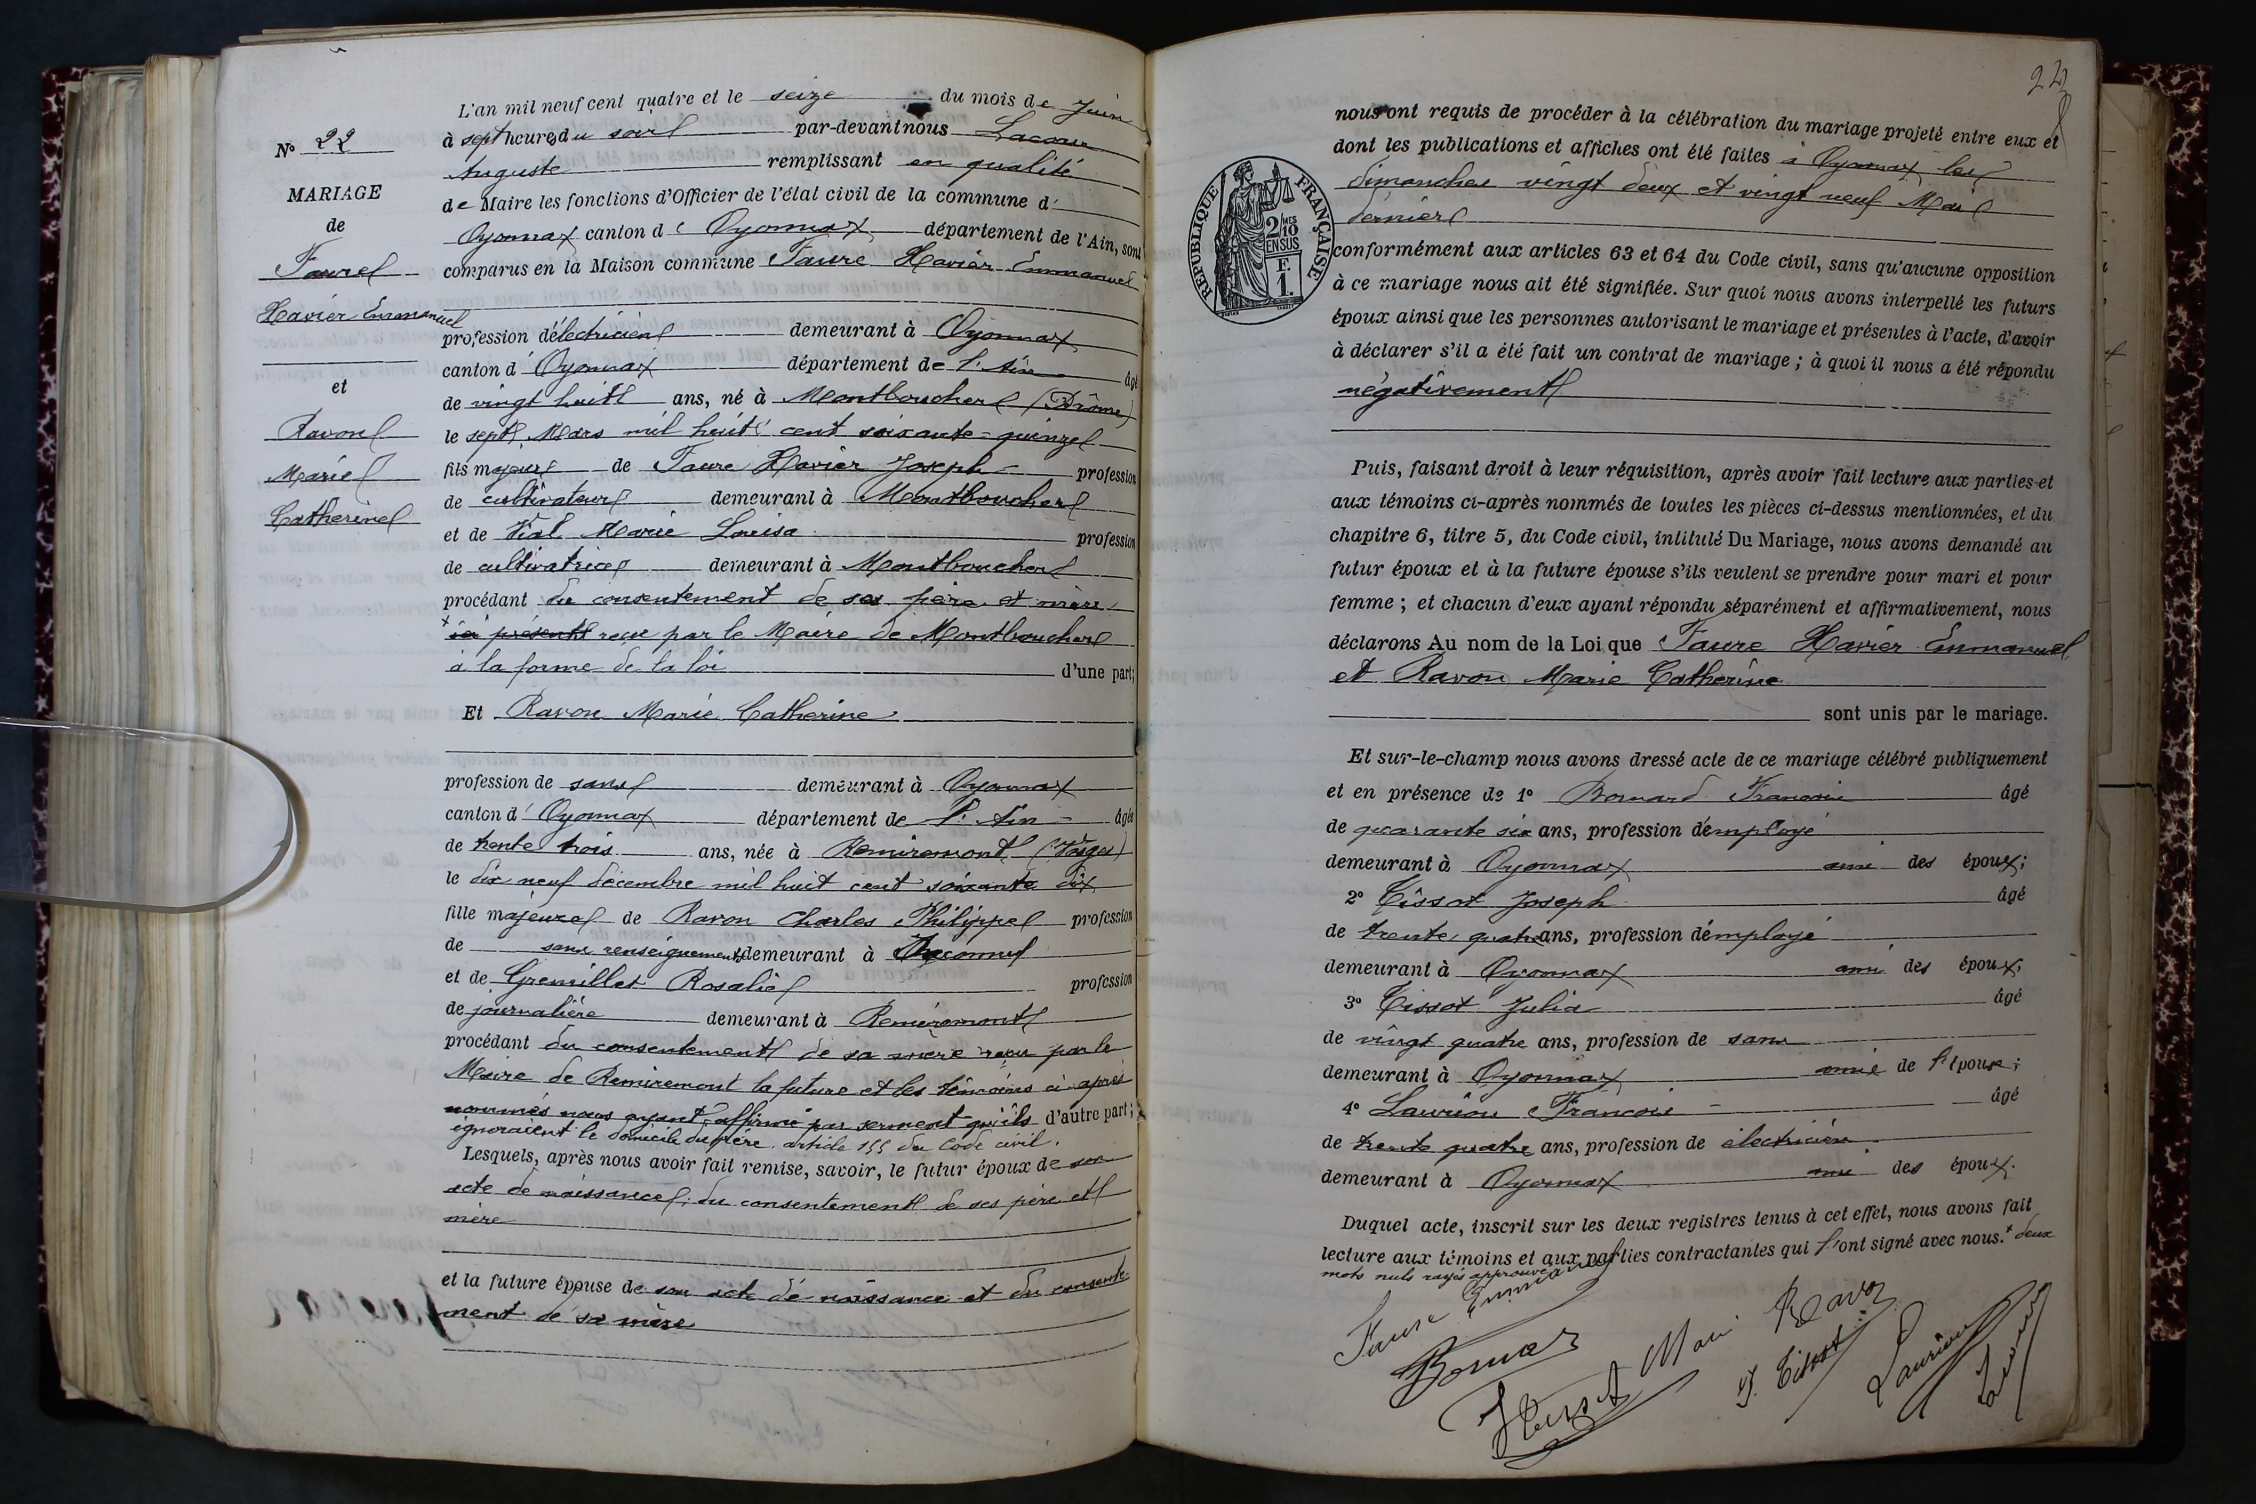 L'an mil neuf cent quatre et le seize du mois de Juin
à sept heures du soir par-devant nous Lacour
Auguste remplissant en qualité
de Maire les fonctions d'Officier de l'état civil de la commune d'
Oyonnax canton d' Oyonnax, département de l'Ain, sont
comparus en la Maison commune Faure Xavier Emmanuel
profession d'électricien demeurant à Oyonnax,
canton d' Oyonnax département de l'Ain âgé
de vingt huit ans, né à Montboucher (Drôme)
le sept Mars mil huit cent soixante-quinze
fils majeur de Faure Xavier Joseph profession
de cultivateur demeurant à Montboucher
et de Vial Marie Louisa profession
de cultivatrice demeurant à Montboucher
procédant du consentement de ses père et mère,
+ ici présents reçu par le Maire de Montboucher
à la forme de la loi d'une part;
Et Ravon Marie Catherine
profession de sans demeurant à Oyonnax
canton d' Oyonnax département de l'Ain âgée
de trente trois ans, née à Remiremont (Vosges)
le dix neuf décembre mil huit cent soixante dix
fille majeure de Ravon Charles Philippe profession
de sans renseignements demeurant à Inconnu
et de Gremillet Rosalie profession
de journalière demeurant à Remiremont
procédant du consentement de sa mère reçu par le
Maire de Remiremont la future et les témoins ci-après
nommés nous ayant affirmé par serment qu'ils d'autre part;
ignoraient le domicile du père. article 155 du Code civil.
Lesquels, après nous avoir fait remise, savoir, le futur époux de son
acte de naissance, du consentement de ses père et
mère
et la future épouse de son acte de naissance et du consente-
ment de sa mère
N° 22
MARIAGE
de
Faure
Xavier Emmanuel
et
Ravon
Marie
Catherine
22
nous ont requis de procéder à la célébration du mariage projeté entre eux et
dont les publications et affiches ont été faites à Oyonnax les
dimanches vingt deux et vingt neuf Mai
dernier
conformément aux articles 63 et 64 du Code civil, sans qu'aucune opposition
à ce mariage nous ait été signifiée. Sur quoi nous avons interpellé les futurs
époux ainsi que les personnes autorisant le mariage et présentes à l'acte, d'avoir
à déclarer s'il a été fait un contrat de mariage; à quoi il nous a été répondu
négativement
RÉPUBLIQUE FRANÇAISE
2 MES
/10
EN SUS
F.
1.
Puis, faisant droit à leur réquisition, après avoir fait lecture aux parties et
aux témoins ci-après nommés de toutes les pièces ci-dessus mentionnées, et du
chapitre 6, titre 5, du Code civil, intitulé Du Mariage, nous avons demandé au
futur époux et à la future épouse s'ils veulent se prendre pour mari et pour
femme; et chacun d'eux ayant répondu séparément et affirmativement, nous
déclarons Au nom de la Loi que Faure Xavier Emmanuel
et Ravon Marie Catherine
sont unis par le mariage.
Et sur-le-champ nous avons dressé acte de ce mariage célébré publiquement
et en présence de 1° Bornard Francois âgé
de quarante six ans, profession d'employé
demeurant à Oyonnax ami des époux;
2° Tissot Joseph âgé
de trente quatre ans, profession d'employé
demeurant à Oyonnax ami des époux;
3° Tissot Julia âgé
de vingt quatre ans, profession de sans
demeurant à Oyonnax amie de l'épouse;
4° Laurion Francois âgé
de trente quatre ans, profession de électricien
demeurant à Oyonnax ami des époux.
Duquel acte, inscrit sur les deux registres tenus à cet effet, nous avons fait
lecture aux témoins et aux parties contractantes qui l'ont signé avec nous. + deux
mots nuls rayés approuvés
Faure Emmanuel
Bornard
Marie Ravon
J Tissot
J. Tissot
Laurion